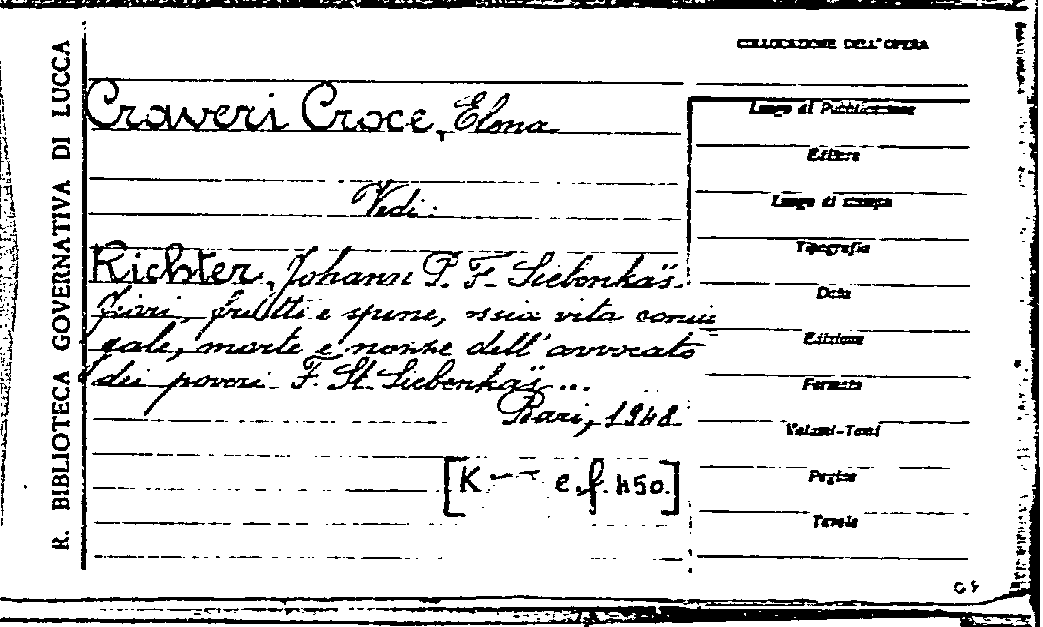 R. BIBLIOTECA GOVERNATIVA DI LUCCA
COLLOCAZIONE DELL'OPERA
Craveri Croce, Elena
Vedi:
Richter, Johann P. F. Siebenkäs.
Fiori, frutti e spine, ossia vita coniu
gale, morte e nozze dell'avvocato
dei poveri F. St. Siebenkäs...
Bari, 1948.
[K e.f. 450.]
Luogo di Pubblicazione
Editore
Luogo di stampa
Tipografia
Data
Edizione
Formato
Volumi-Tomi
Pagine
Tavole